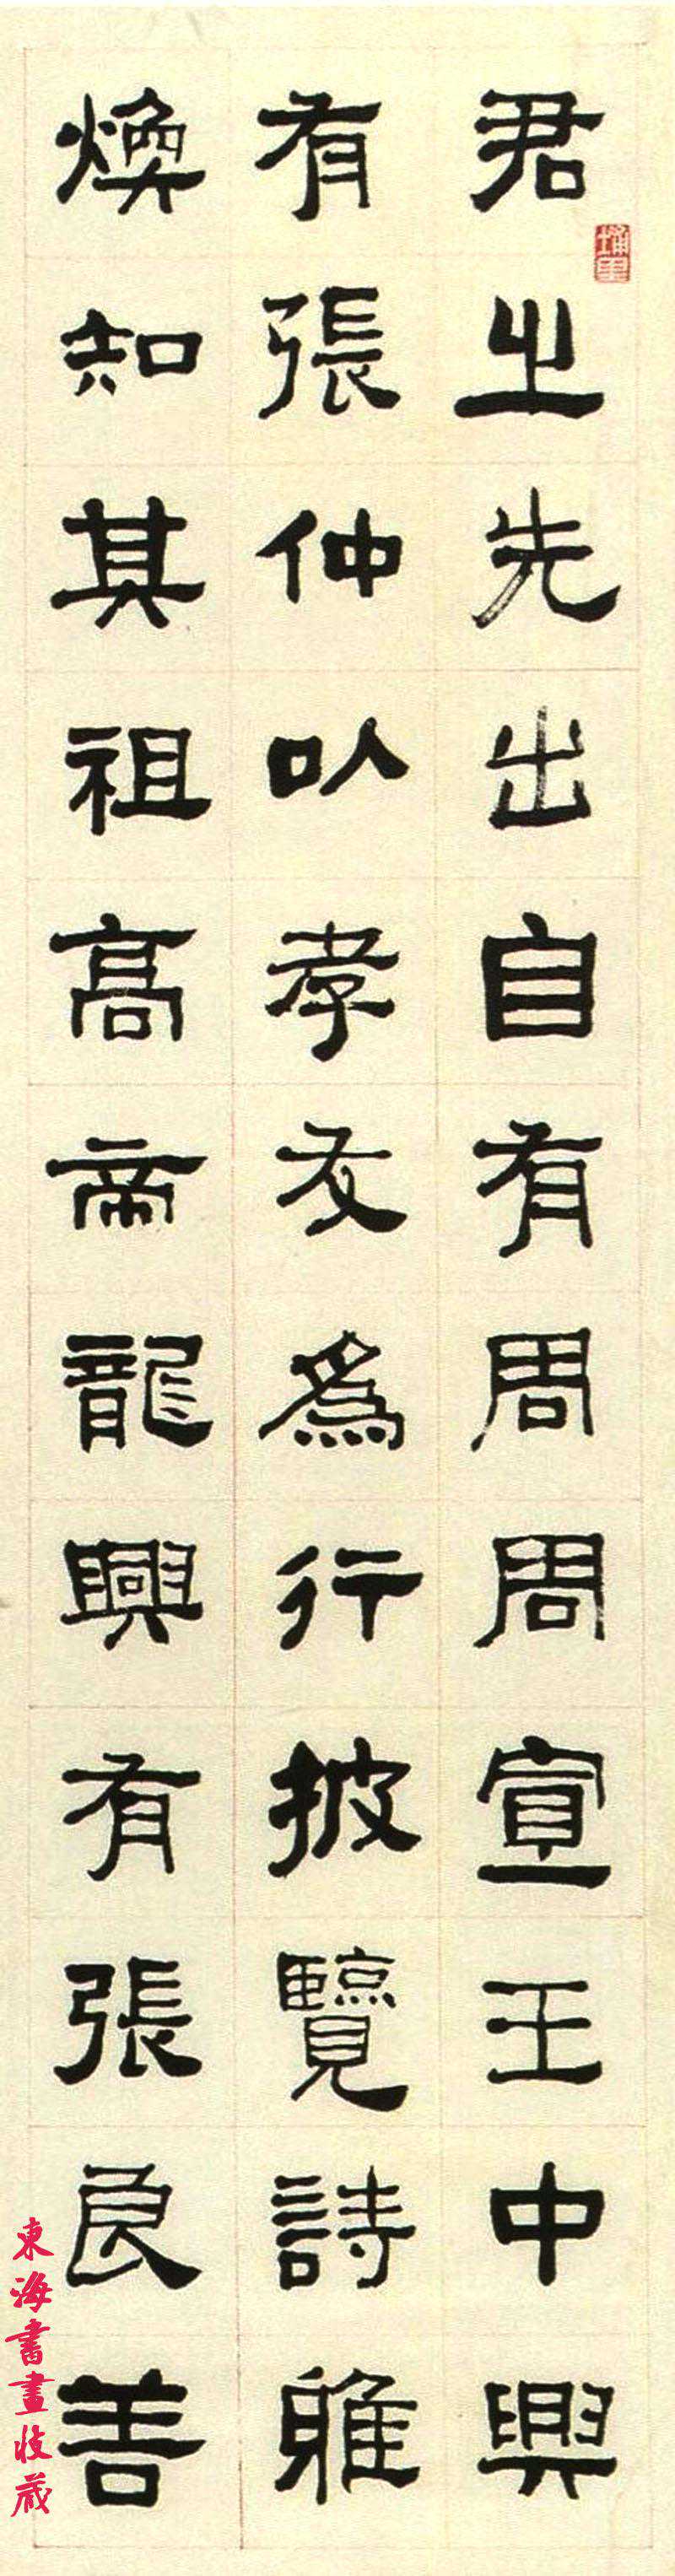 君之先出自有周周宣王中興
有張仲以孝友爲行披覽詩雅
煥知其祖高帝龍興有張良善
東海書畫收藏